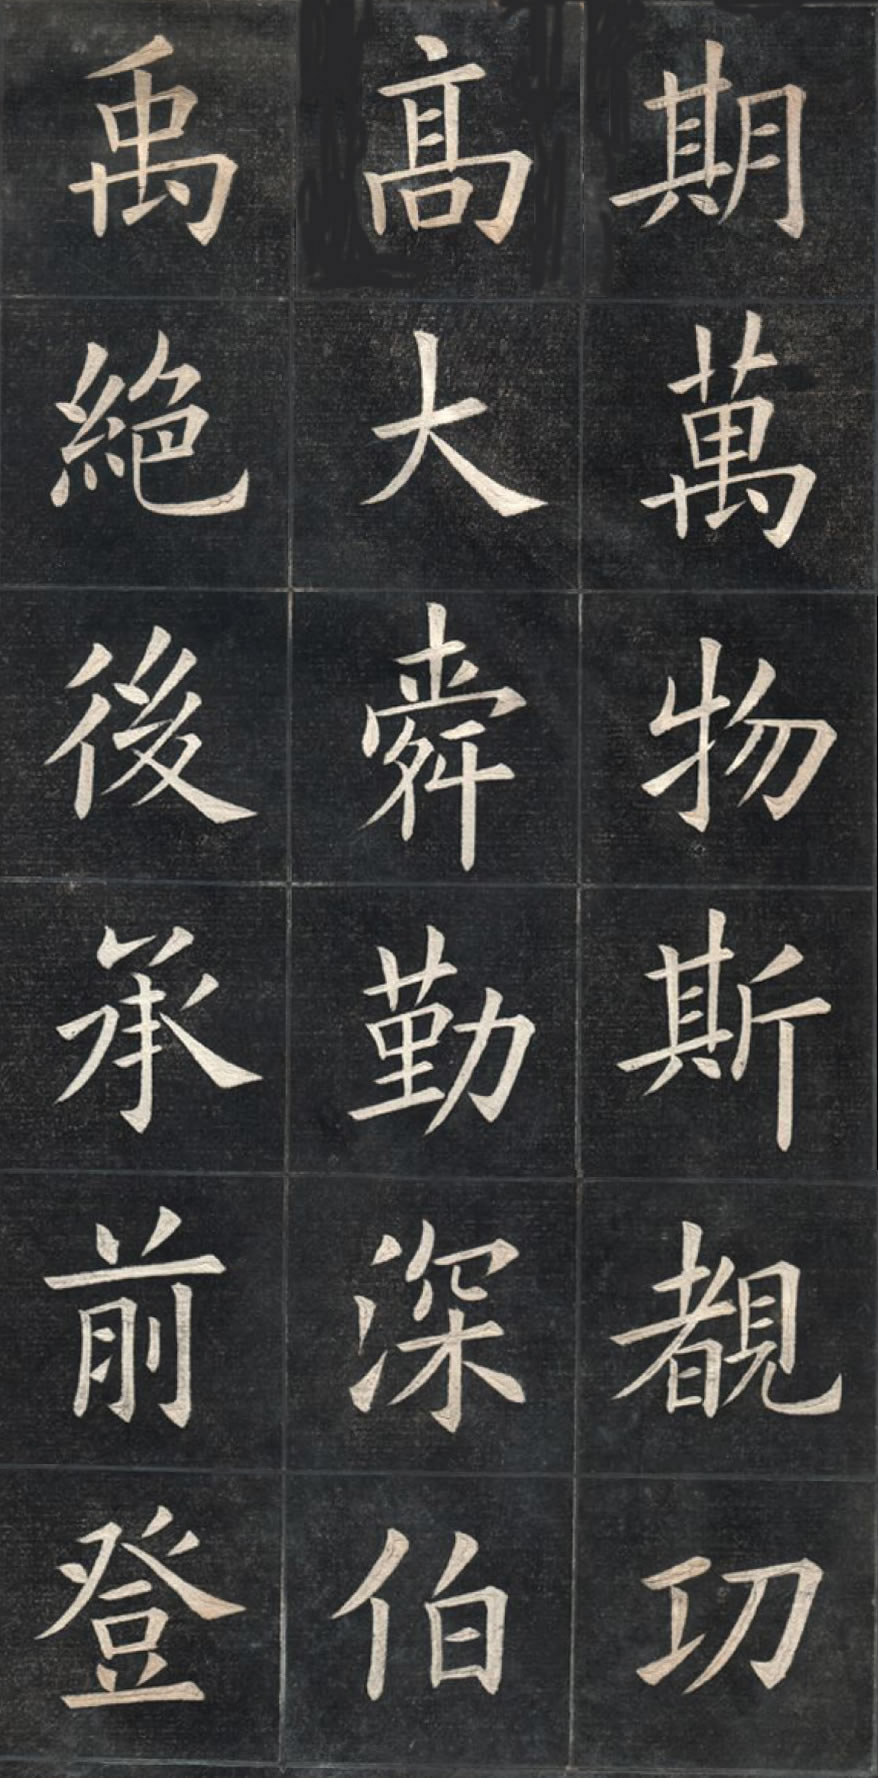 期萬物斯覩功
高大舜勤深伯
禹絕後承前登